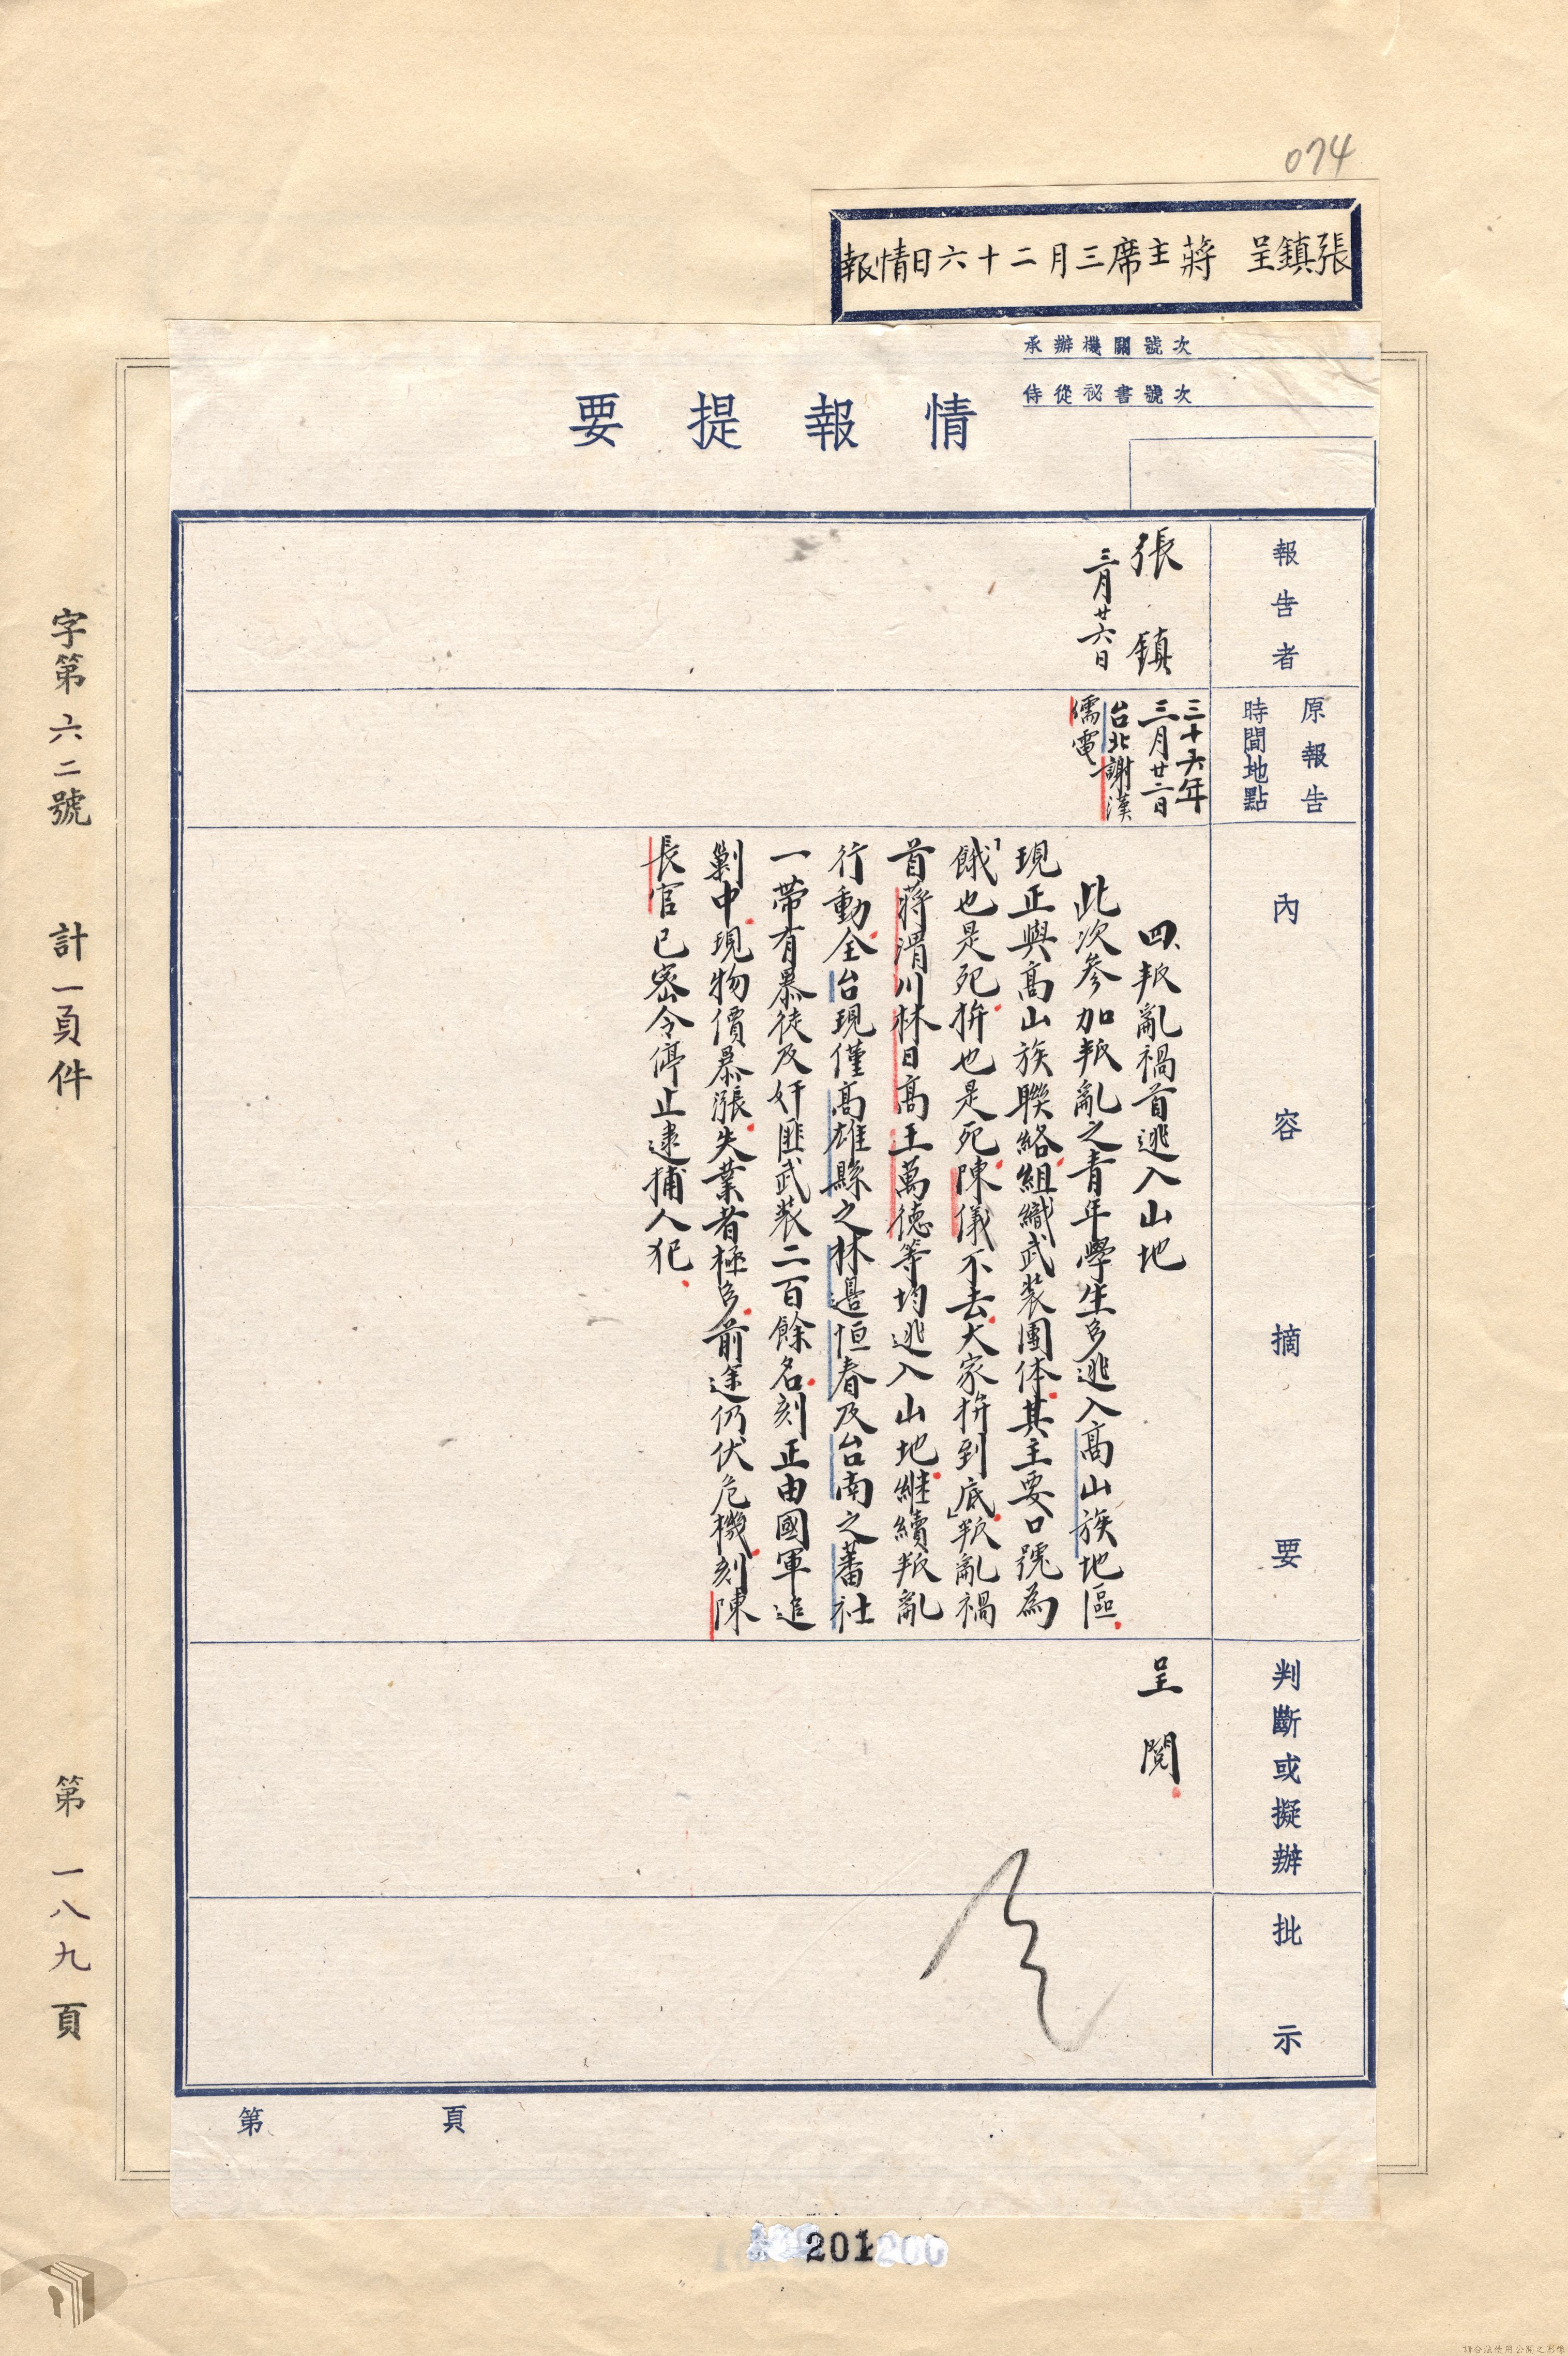 074
張鎮呈 蔣主席三月二十六日情報
承辦機關號次
侍從祕書號次
情報提要
報告者
張鎮
三月廿六日
原報告
時間地點
三十六年
三月廿二日
台北謝漢
儒電
內容摘要
四、叛亂禍首逃入山地
此次參加叛亂之青年學生多逃入高山族地區
現正與高山族聯絡組織武装團体其主要口號為
「餓也是死拚也是死陳儀不去大家拚到底」叛亂禍
首蔣渭川林日高王萬德等均逃入山地継續叛亂
行動全台現僅高雄縣之林邊恒春及台南之蕃社
一帶有暴徒及奸匪武装二百餘名刻正由國軍追
剿中現物價暴漲失業者極多前途仍伏危機刻陳
長官已密令停止逮捕人犯
判斷或擬辦
呈閱
批示
第 頁
字第六二號 計一頁件 第一八九頁
201
請合法使用公開之影像